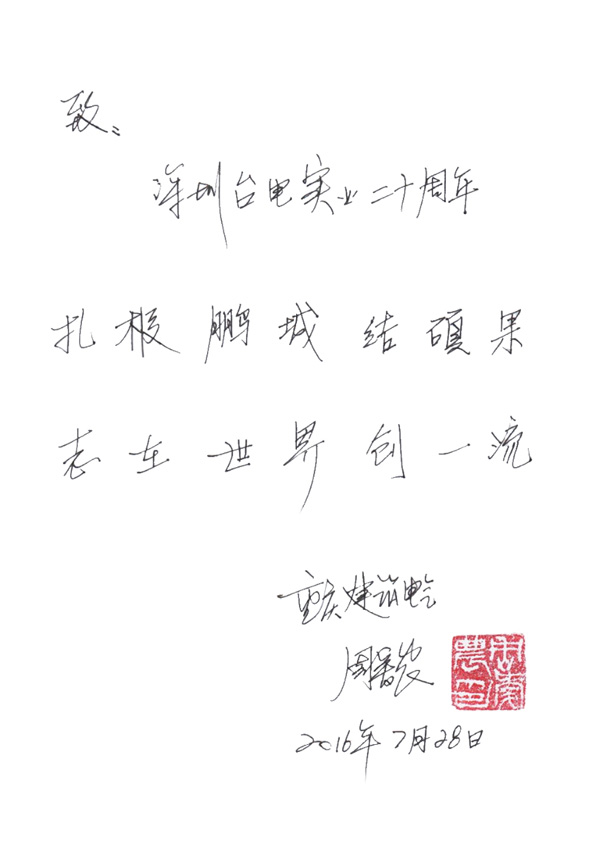 致:
深圳台电实业二十周年
扎根鹏城结硕果
志在世界创一流
重庆建筑电气
2016年7月28日